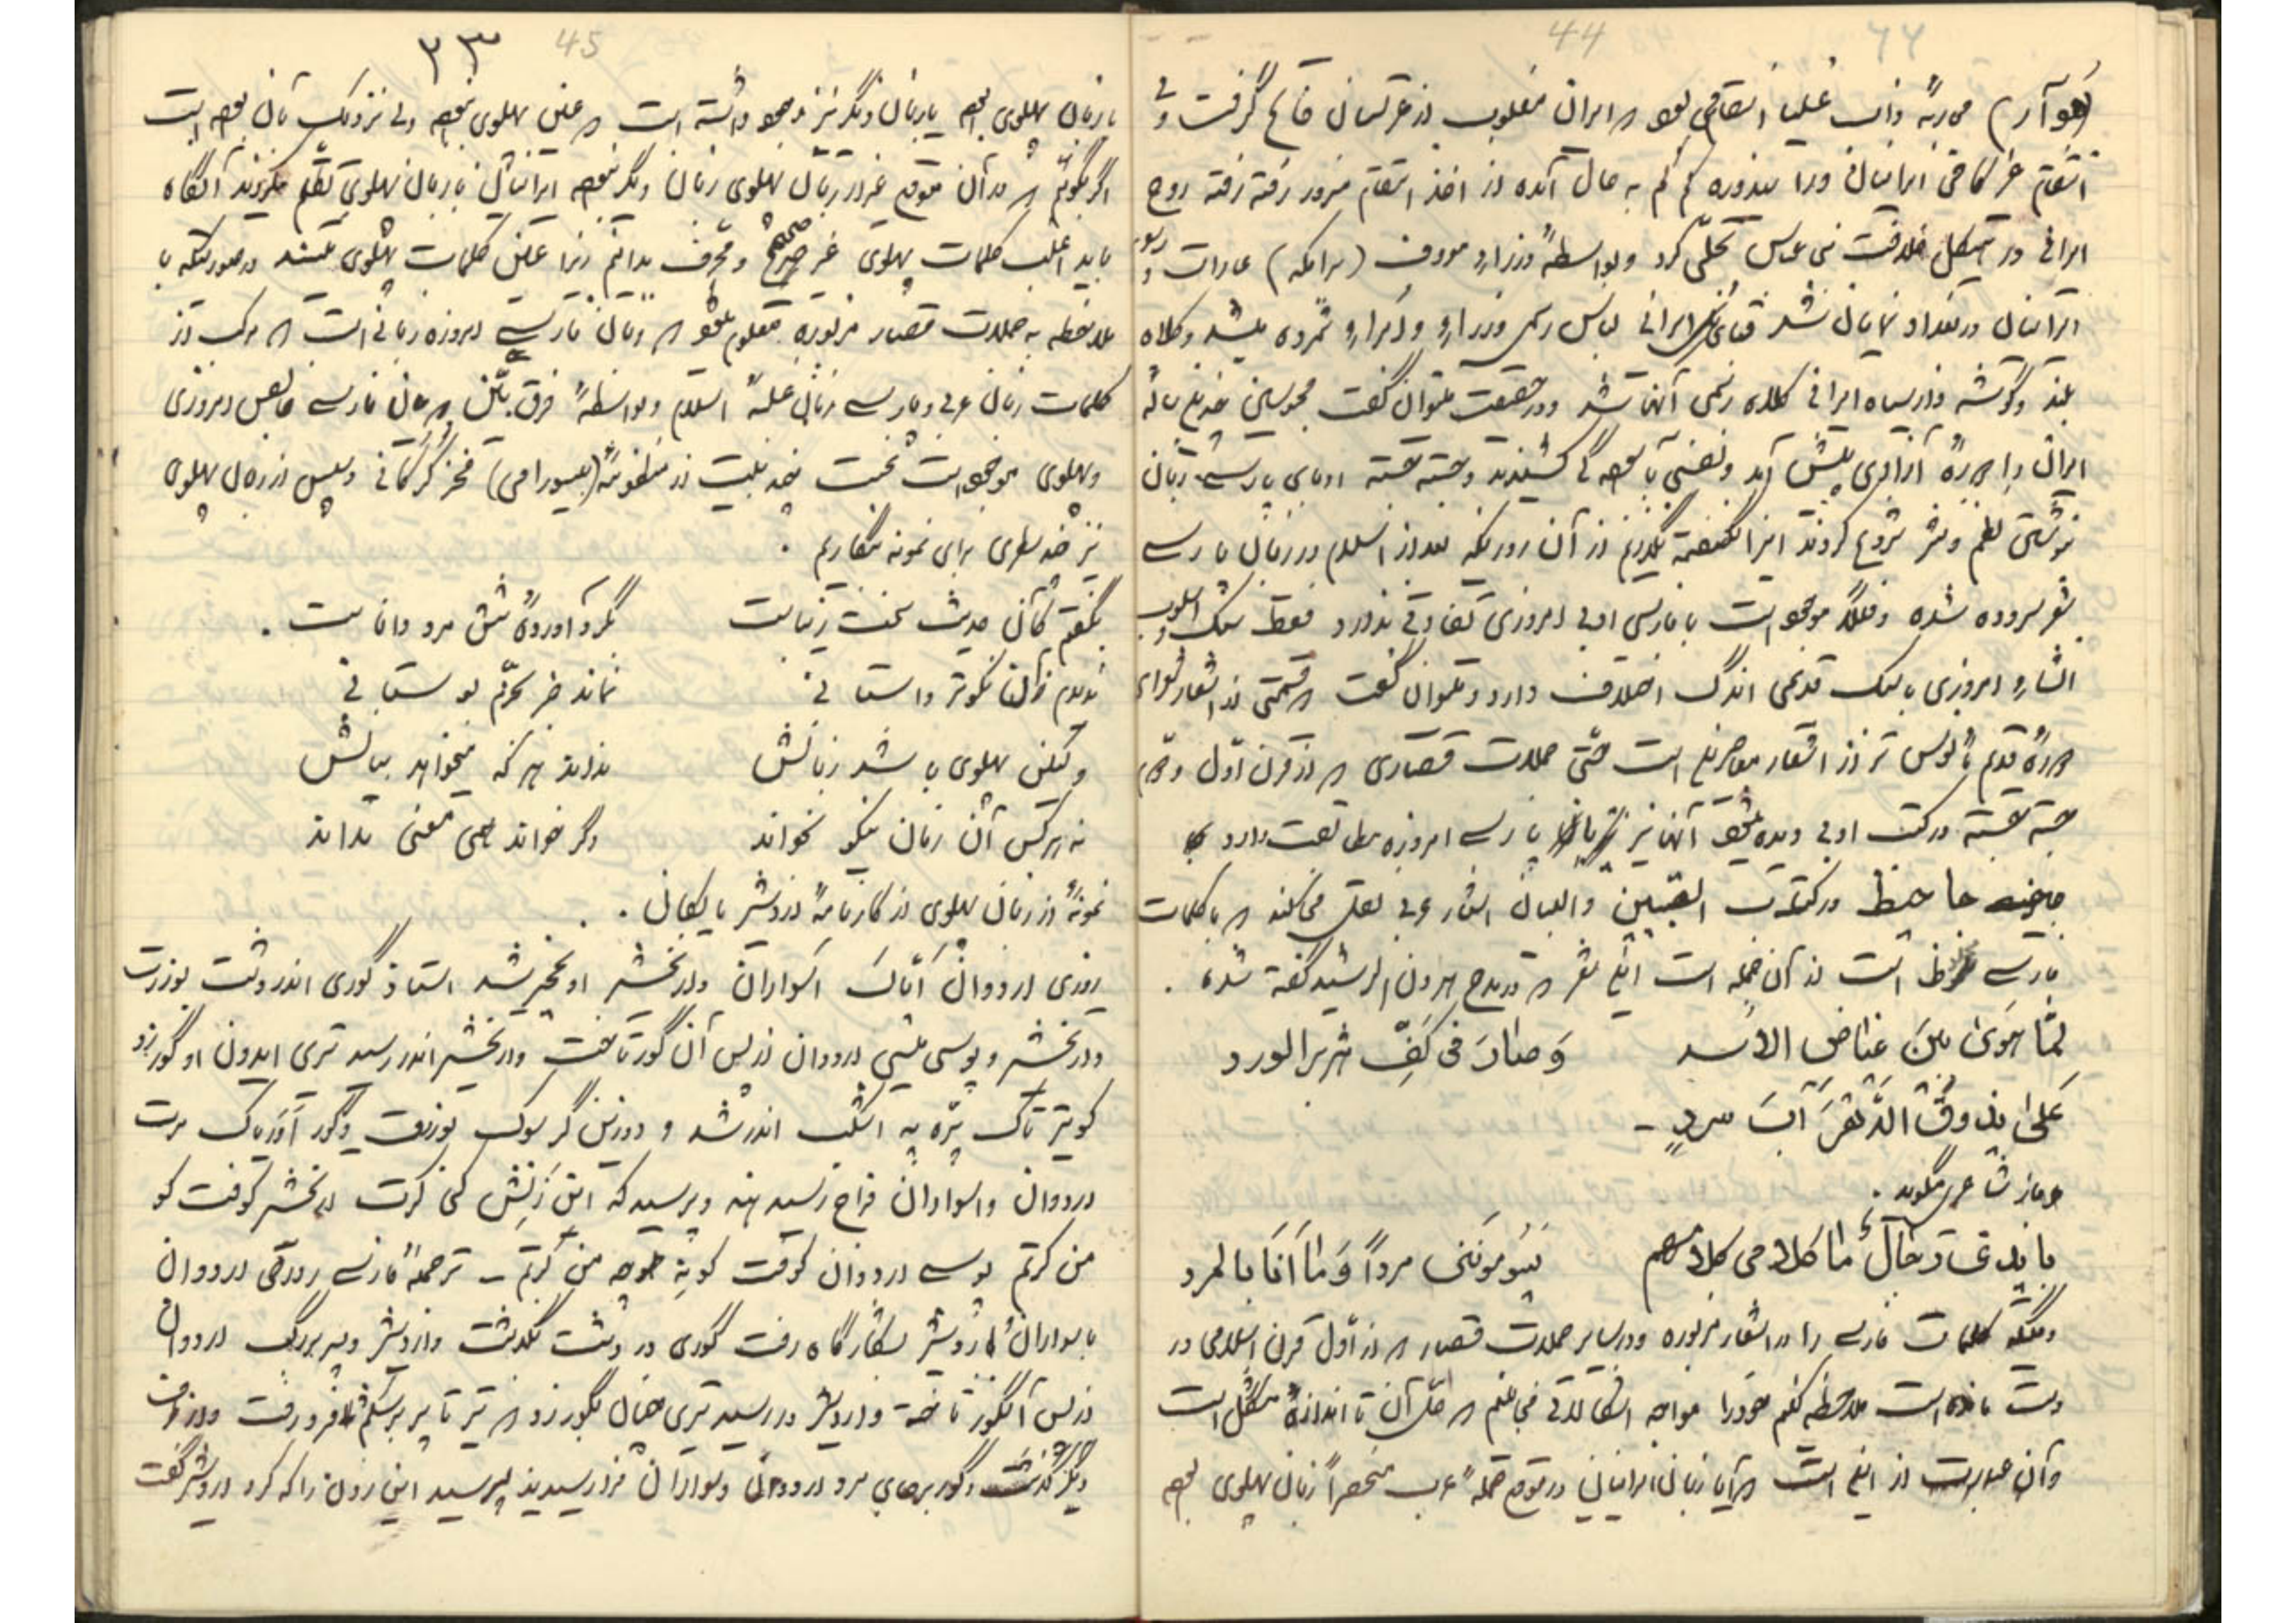 44
(قوآر) محاربهٔ ذات علیا انتقامی بود که ایران مغلوب از عربستان فاتح گرفت و
انتقام غم کافی ایرانیان کم کم به حال آمده از اخذ انتقام مزبور رفته رفته روح
ایرانی در هیکل خلافت بنی عباس تجلّی کرد و بواسطهٔ وزراء معروف (برامکه) عادات و رسوم
ایرانیان در بغداد نمایان شد قبای ایرانی لباس رسمی وزراء و امراء شمرده میشد و کلاه
بلند و گوشه دار سیاه ایرانی کلاه رسمی آنها شد و در حقیقت میتوان گفت محبوسین چندین ساله
ایران را دورهٔ آزادی پیش آمد و نفسی بآسودگی کشیدند و جسته جسته ادبای پارسی زبان
بنوشتن نظم و نثر شروع کردند این را نگفته نگذریم از آن روزیکه بعد از اسلام در زبان پارسی
شعر سروده شده و فعلاً موجود است با فارسی ادبی امروزی تفاوتی ندارد فقط سبک و اسلوب
انشاء امروزی با سبک قدیمی اندک اختلاف دارد و میتوان گفت که قسمتی از اشعار شعرای
دورهٔ قدیم مأنوس تر از اشعار معاصرین است حتّی جملات قصاری که از قرن اوّل و دوّم
جسته جسته در کتب ادبی دیده میشود آنها نیز با پارسی امروزه مطابقت دارد
جاحظ در کتاب البیین و التبیان اشعار عربی نقل میکند که با کلمات
پارسی مخلوط است از آن جمله است این شعر که در مدح هرون الرشید گفته شده .
لمّا هَوَی بینَ غیاض الاسد وَ صٰارَ فی کَفِّ هزبر الورد
عَلیٰ یذوقُ الدّهرَ آبَ سردٍ -
و باز شاعری میگوید .
ما کلامی کلامهم مرداً وَ مٰا اَنَا بالمرد
وقتیکه کلمات فارسی را در اشعار مزبوره و در سایر جملات قصار که از اوّل قرن اسلامی در
دست مانده است ملاحظه کنیم خود را مواجه اشکالاتی می بینیم که حلّ آن تا اندازهٔ مشکل است
و آن عبارت از این است که آیا زبان ایرانیان در موقع حملهٔ عرب منحصراً زبان پهلوی بوده
۲۳ 45
یا زبان پهلوی بوده یا زبان دیگر نیز وجود داشته است که عین پهلوی نبوده ولی نزدیک بآن بوده است
اگر بگوئیم که در آن موقع غیر از زبان پهلوی زبان دیگر نبوده ایرانیان با زبان پهلوی تکلّم میکردند آنگاه
باید اغلب کلمات پهلوی غیر صحیح و محرّف بدانیم زیرا عین کلمات پهلوی نیستند در صورتیکه با
ملاحظه به جملات قصار مزبوره معلوم میشود که زبان فارسی امروزه زبانی است که مرکب از
کلمات زبان عربی و پارسی زمان غلبهٔ اسلام و بواسطهٔ فرق بیّن که میان فارسی خالص امروزی
و پهلوی موجود است نخست چند بیت از منظومهٔ (ویس و رامین) فخر گرگانی و سپس از زبان پهلوی
نیز چند سطری برای نمونه بنگاریم .
بگفتم کآن حدیث سخت زیباست بگرد آوردهٔ شش مرد داناست .
ندیدم زآن نکوتر داستانی نماند جز بخرّم بوستانی
ولیکن پهلوی باشد زبانش نداند هر که میخواهد بیانش
نه هر کس آن زبان نیکو بخواند وگر خواند همی معنی نداند
نمونهٔ از زبان پهلوی از کارنامهٔ اردشیر بابکان .
روزی اردوان اَپاک اسواران و ارتخشیر او نخچیر شد استا و گوری اندر دشت بوزرت
و ارتخشیر و پوسی مسی اردوان از پس آن گور تاخت و ارتخشیر اندر رسید تری ایدون او گور زد
کو تیر تاک پره په اشکمب اندر شد و دوزین گر سوک بوزرت و گور اَوَر یاک مرت
اردوان و اسواران فراج رسید هند و پرسید که این زَنِش کی کرت ارتخشیر گوفت کو
من کرتم پوسی اردوان گوفت کو نه چه من کرتم - ترجمهٔ فارسی روزی اردوان
با سواران و اردشیر بشکارگاه رفت گوری در دشت بگذشت و اردشیر و پسر بزرگ اردوان
از پس آنگور تاخته و اردشیر در رسید تیری چنان بگور زد که تیر تا پر بر شکم فرو رفت و از طرف
دیگر گذشت و گور بر جای مرد اردوان و سواران فراز رسیدند پرسید این زدن را که کرد اردشیر گفت